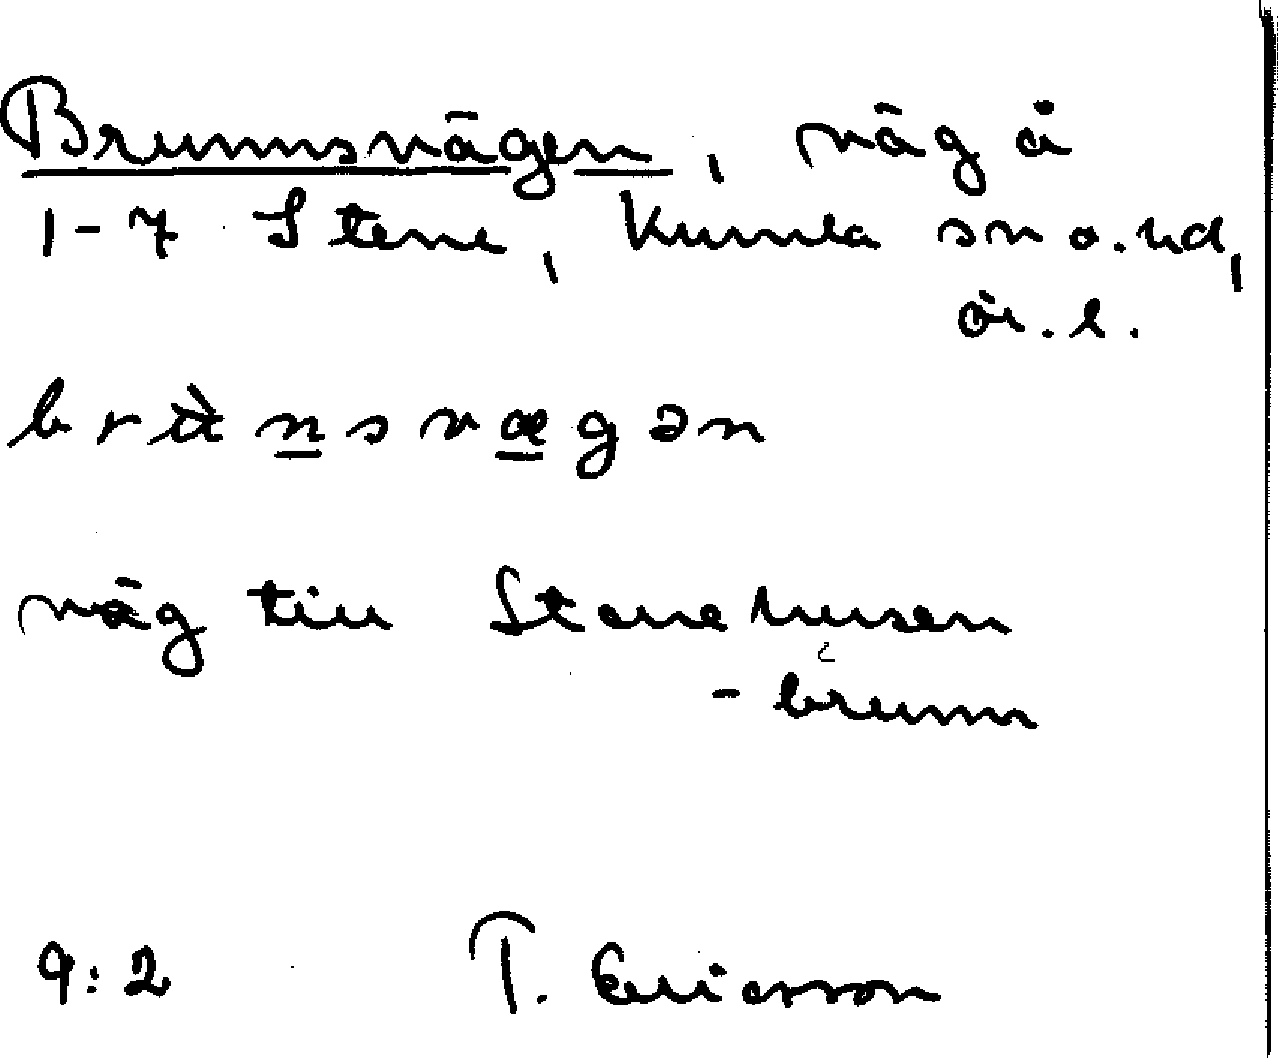 Brunnsvägen, väg å
1-7 Stene, Kumla sn o. hd,
ör. l.
väg till Stenehusen
-brunn
9:2 T. Ericsson